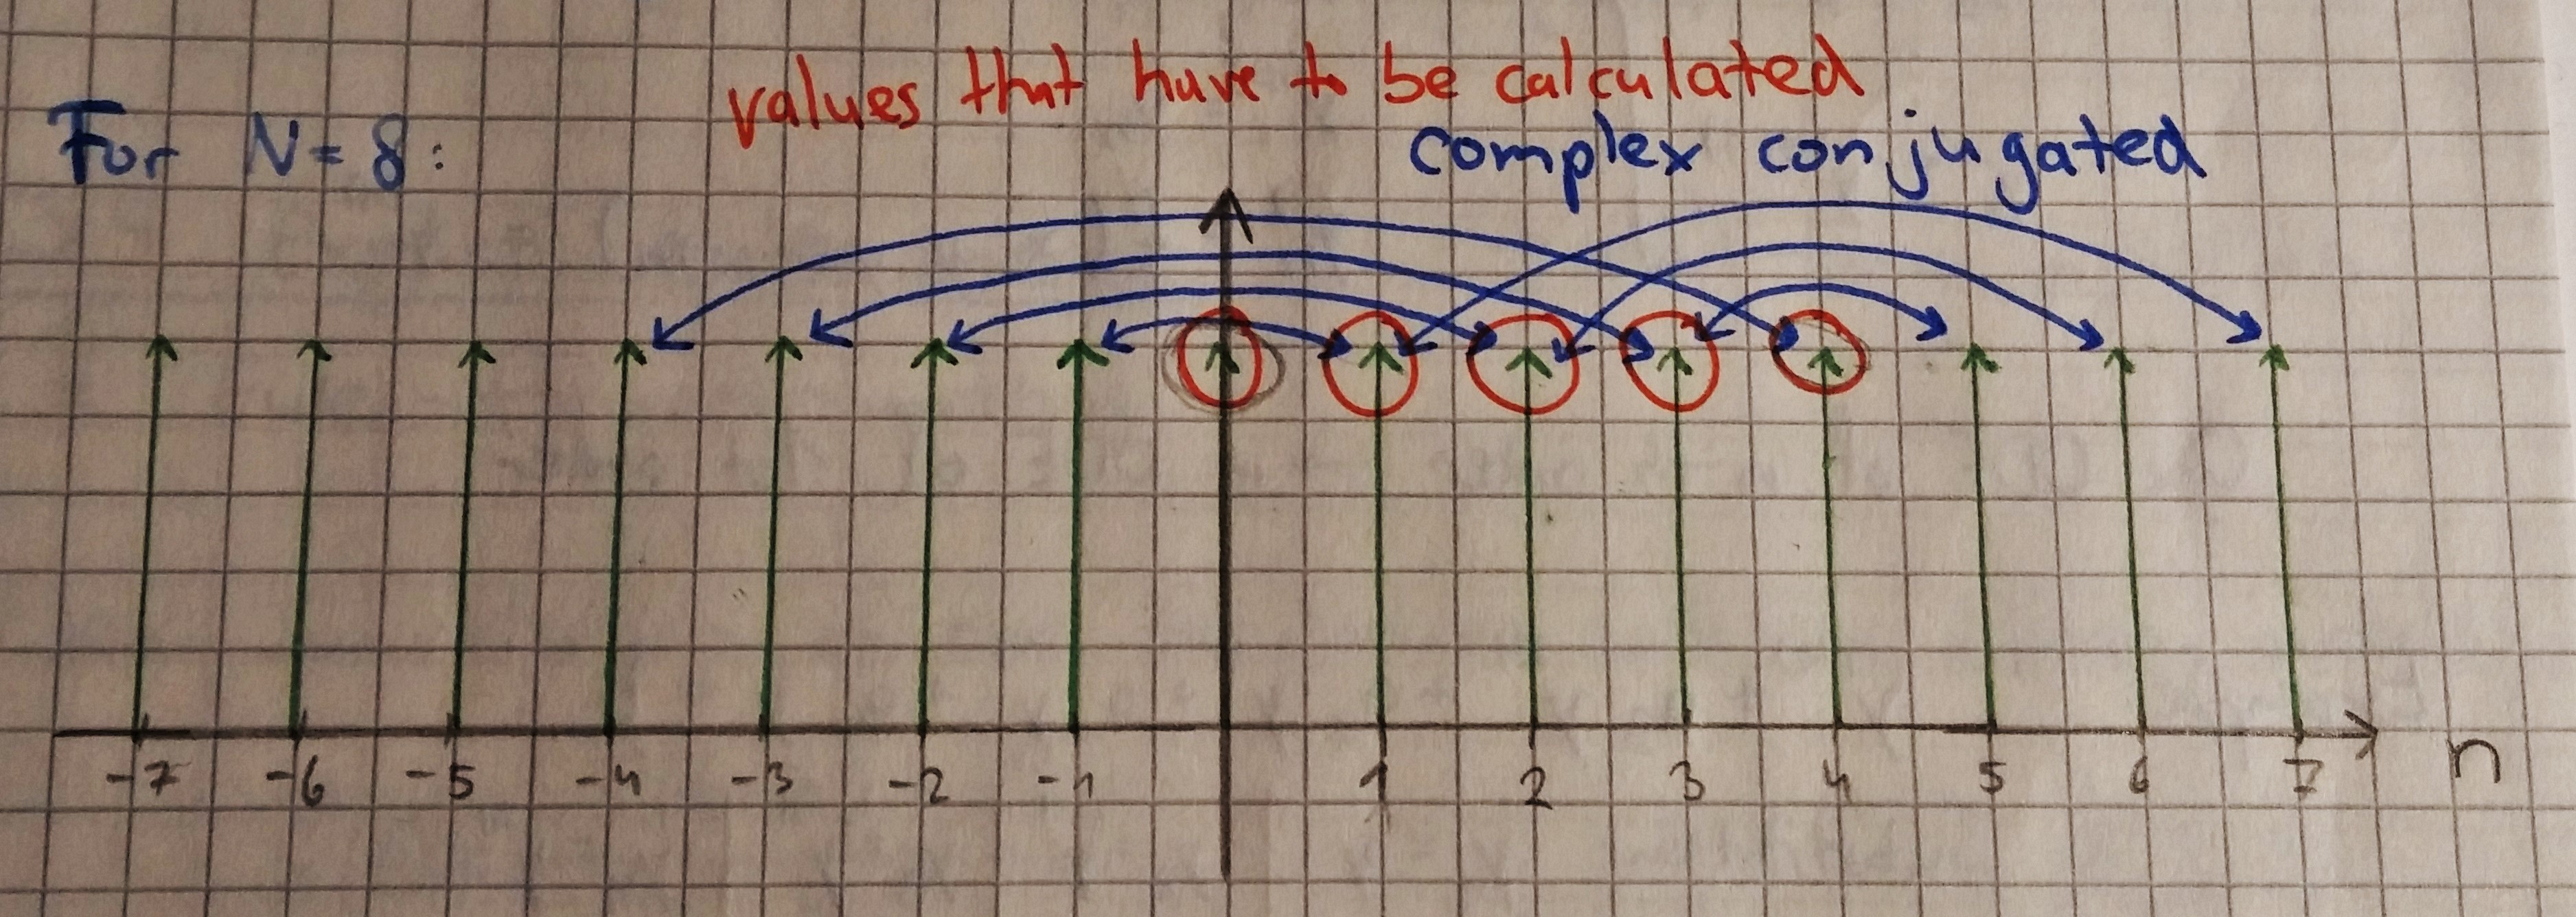 values that have to be calculated
For N=8:
complex conjugated
-7 -6 -5 -4 -3 -2 -1 1 2 3 4 5 6 7 n